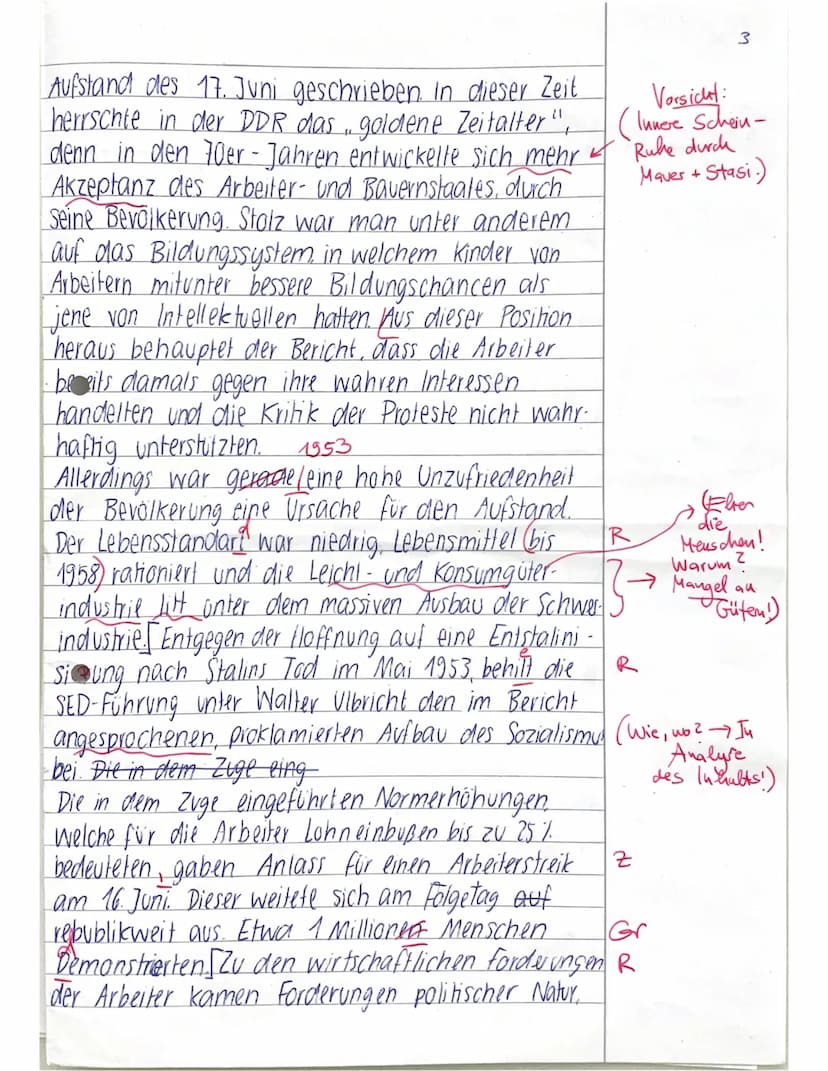 3
Aufstand des 17. Juni geschrieben. In dieser Zeit
herrschte in der DDR das „goldene Zeitalter",
denn in den 70er-Jahren entwickelte sich mehr
Akzeptanz des Arbeiter- und Bauernstaates, durch
seine Bevölkerung. Stolz war man unter anderem
auf das Bildungssystem, in welchem Kinder von
Arbeitern mitunter bessere Bildungschancen als
jene von Intellektuellen hatten. Aus dieser Position
heraus behauptet der Bericht, dass die Arbeiter
bereits damals gegen ihre wahren Interessen
handelten und die Kritik der Proteste nicht wahr-
haftig unterstützten.
1953
Allerdings war gerade eine hohe Unzufriedenheit
der Bevölkerung eine Ursache für den Aufstand.
Der Lebensstandart war niedrig, Lebensmittel (bis
1958) rationiert und die Leicht- und Konsumgüter-
industrie litt unter dem massiven Ausbau der Schwer-
industrie. Entgegen der Hoffnung auf eine Entstalini-
sierung nach Stalins Tod im Mai 1953, behilt die
SED-Führung unter Walter Ulbricht den im Bericht
angesprochenen, proklamierten Aufbau des Sozialismus
bei. Die in dem Zuge eing
Die in dem Zuge eingeführten Normerhöhungen,
welche für die Arbeiter Lohneinbußen bis zu 25 %
bedeuteten, gaben Anlass für einen Arbeiterstreik
am 16. Juni. Dieser weitete sich am Folgetag auf
republikweit aus. Etwa 1 Millionen Menschen
Demonstrierten. Zu den wirtschaftlichen Forderungen
der Arbeiter kamen Forderungen politischer Natur,
Vorsicht:
(Innere Schein-
Ruhe durch
Mauer + Stasi.)
R
d
(Eben
die
Menschen!
Warum?
Mangel an
Gütern!)
R
e
(Wie, wo? → In
Analyse
des Inhalts!)
Z
Gr
R
d